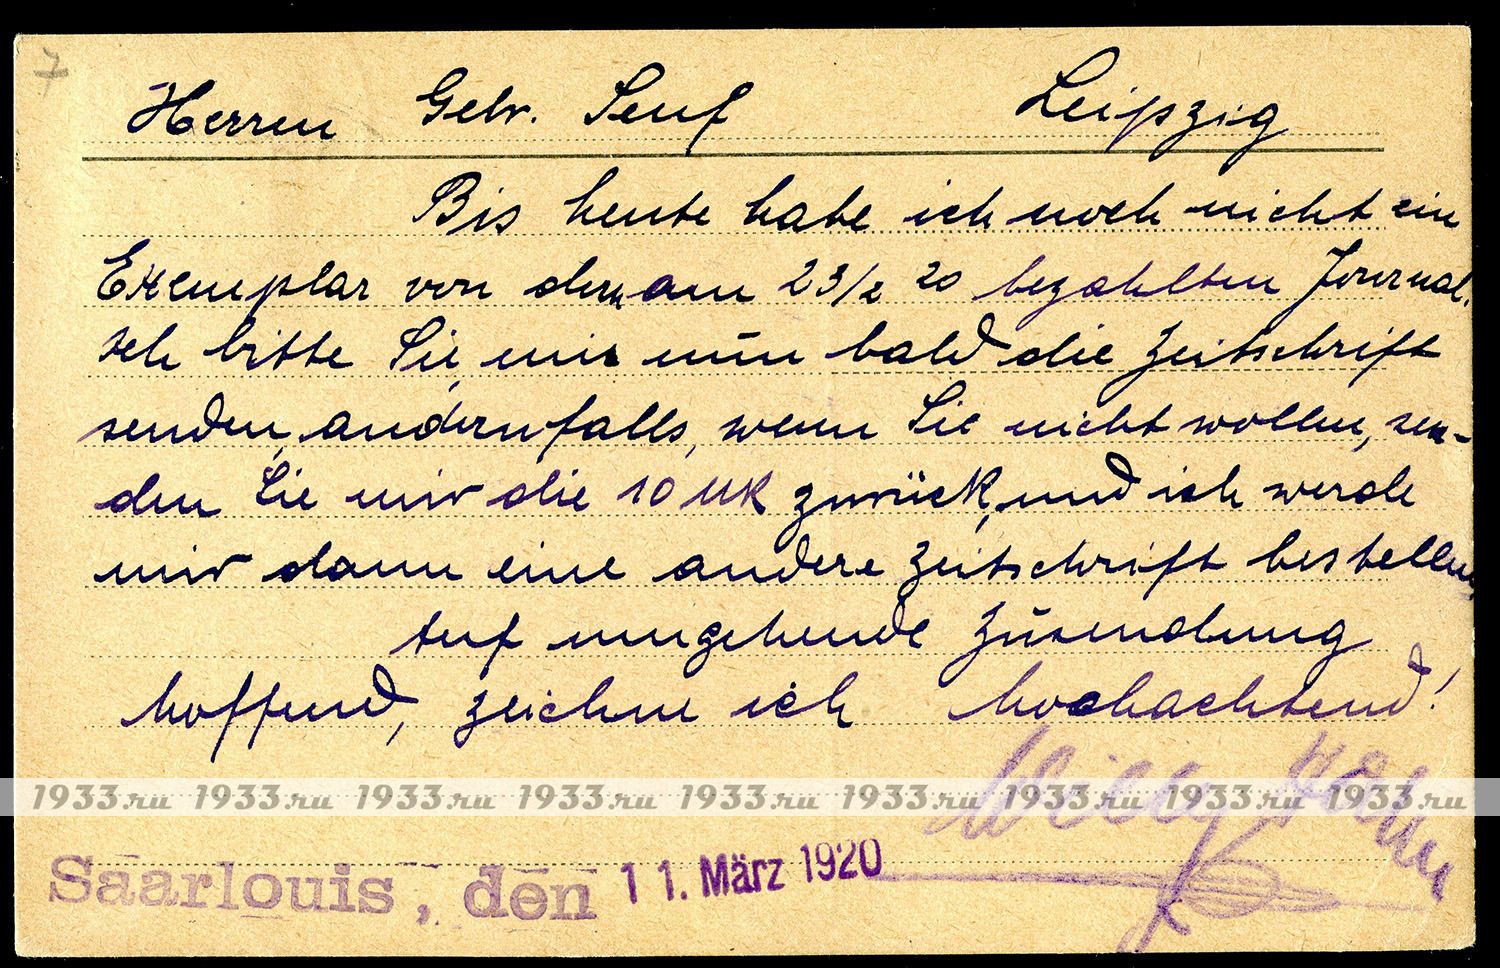 7
Herren Gebr. Senf Leipzig
Bis heute habe ich noch nicht ein
Exemplar von dem am 23/2 20 bezahlten Journal.
Ich bitte Sie, mir nun bald die Zeitschrift
senden, andernfalls, wenn Sie nicht wollen, sen-
den Sie mir die 10 MK zurück, und ich werde
mir dann eine andere Zeitschrift bestellen
Auf umgehende Zusendung
hoffend, zeichne ich hochachtend!
Willy
1933.ru 1933.ru 1933.ru 1933.ru 1933.ru 1933.ru 1933.ru 1933.ru 1933.ru
Saarlouis, den 11. März 1920